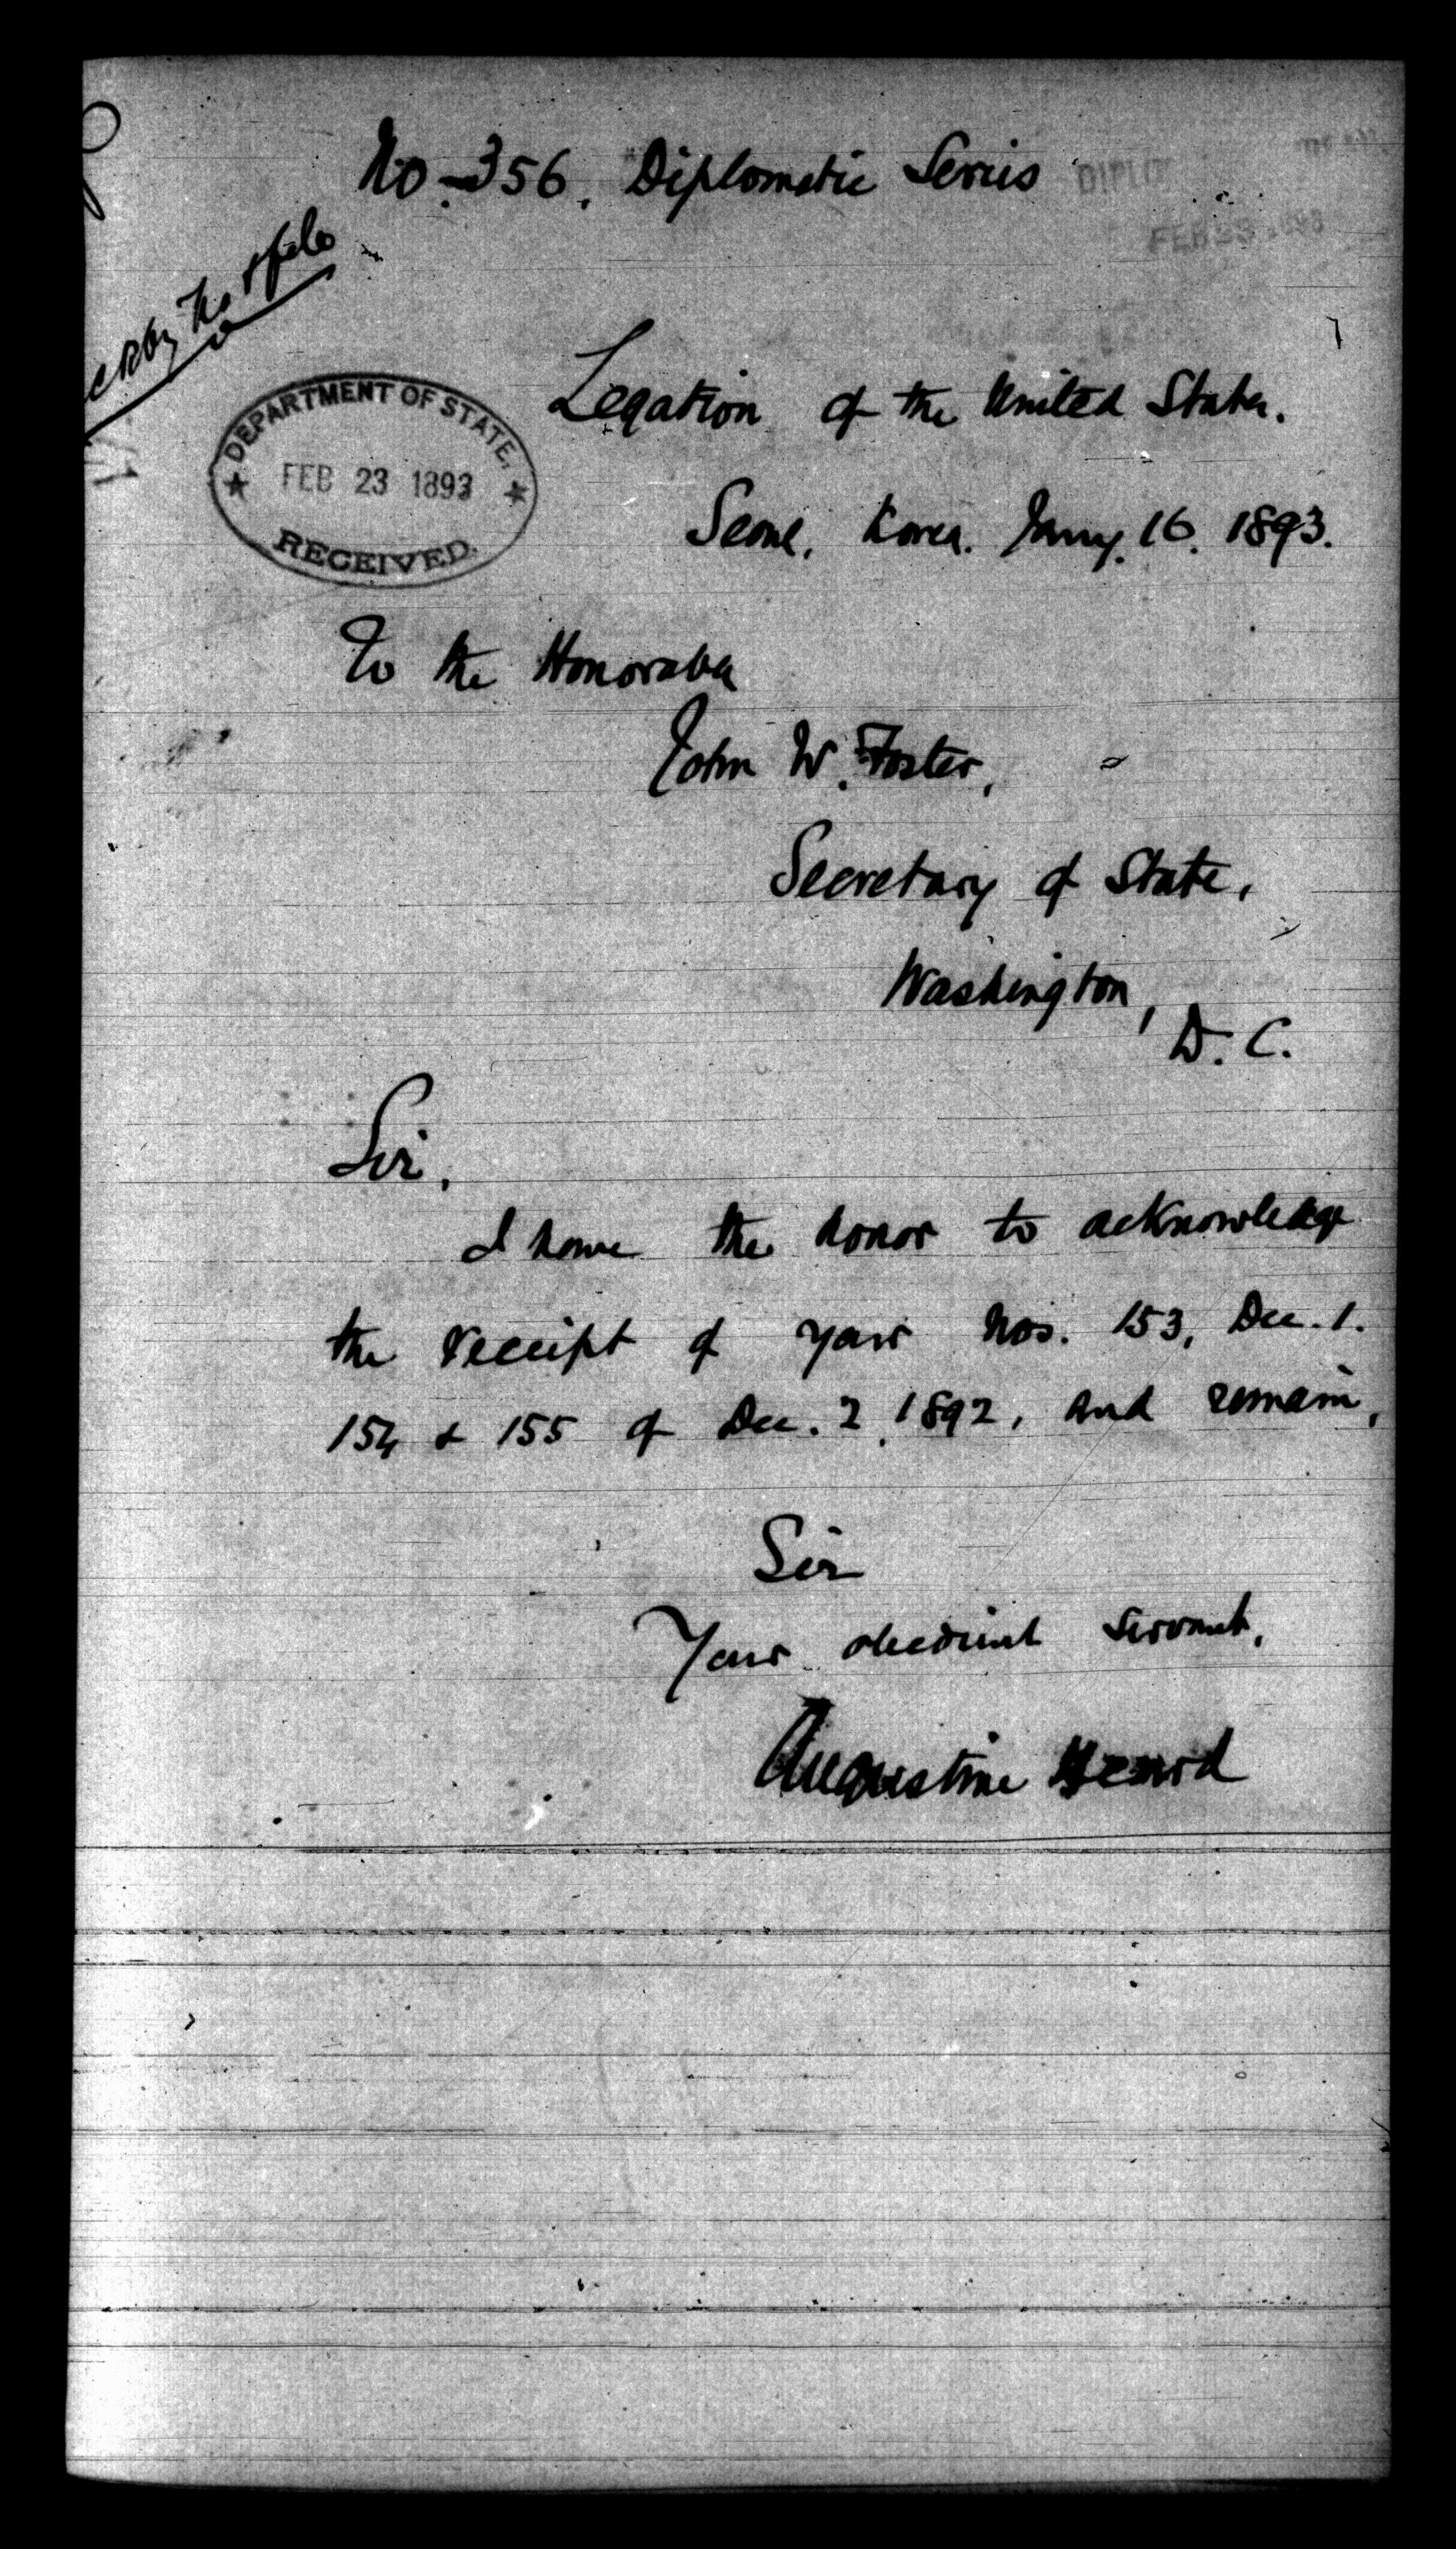 No. 356. Diplomatic Series
DIPLO
FEB 23 1893
by No & file
Legation of the United States.
DEPARTMENT OF STATE,
FEB 23 1893
RECEIVED.
Seoul, Korea. Jany. 16. 1893.
To the Honorable
John W. Foster,
Secretary of State,
Washington,
D. C.
Sir,
I have the honor to acknowledge
the receipt of your Nos. 153, Dec. 1.
154 & 155 of Dec. 2, 1892, and remain,
Sir
Your obedient servant,
Augustine Heard